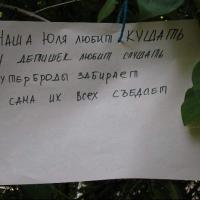 НАША ЮЛЯ ЛЮБИТ КУШАТЬ
И ДЕТИШЕК ЛЮБИТ СЛУШАТЬ
БУТЕРБРОДЫ ЗАБИРАЕТ
САМА ИХ ВСЕХ СЪЕДАЕТ